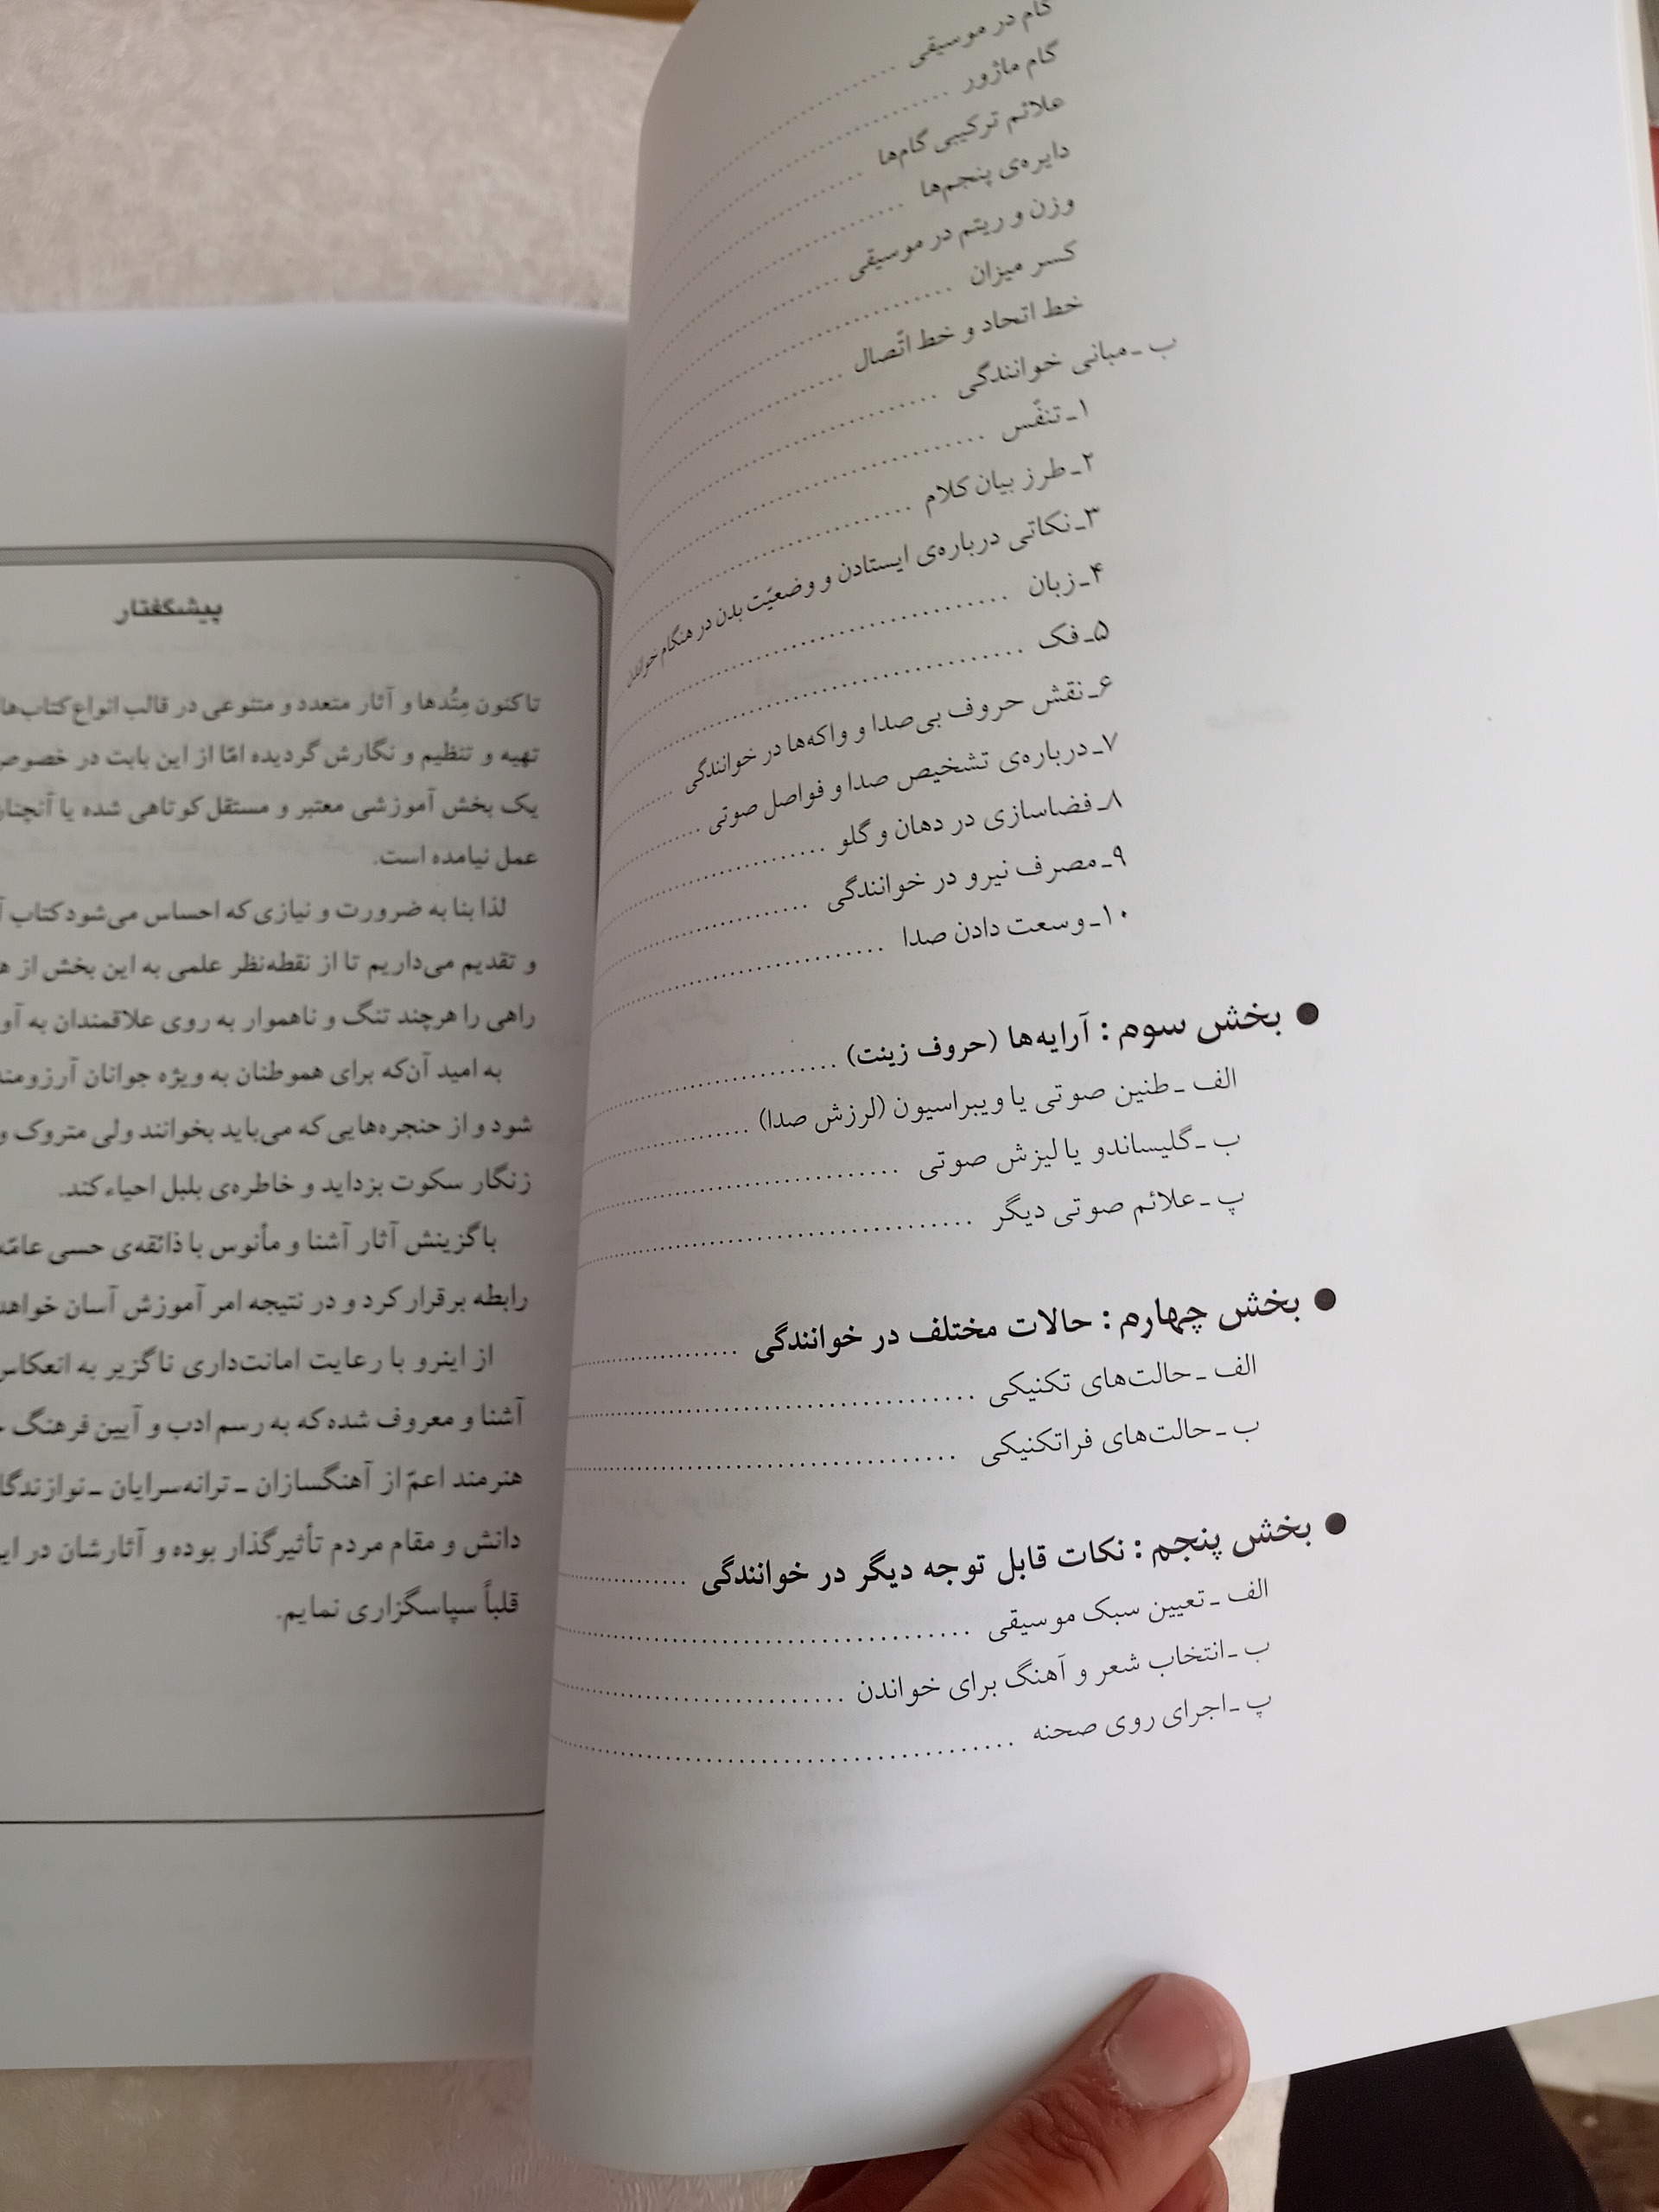 گام در موسیقی
گام ماژور
علائم ترکیبی گام‌ها
دایره‌ی پنجم‌ها
وزن و ریتم در موسیقی
کسر میزان
خط اتحاد و خط اتّصال
ب ـ مبانی خوانندگی
۱ـ تنفّس
۲ـ طرز بیان کلام
۳ـ نکاتی درباره‌ی ایستادن و وضعیّت بدن در هنگام خواندن
۴ـ زبان
۵ـ فک
۶ـ نقش حروف بی‌صدا و واکه‌ها در خوانندگی
۷ـ درباره‌ی تشخیص صدا و فواصل صوتی
۸ـ فضاسازی در دهان و گلو
۹ـ مصرف نیرو در خوانندگی
۱۰ـ وسعت دادن صدا
● بخش سوم : آرایه‌ها (حروف زینت)
الف ـ طنین صوتی یا ویبراسیون (لرزش صدا)
ب ـ گلیساندو یا لیزش صوتی
پ ـ علائم صوتی دیگر
● بخش چهارم : حالات مختلف در خوانندگی
الف ـ حالت‌های تکنیکی
ب ـ حالت‌های فراتکنیکی
● بخش پنجم : نکات قابل توجه دیگر در خوانندگی
الف ـ تعیین سبک موسیقی
ب ـ انتخاب شعر و آهنگ برای خواندن
پ ـ اجرای روی صحنه
پیشگفتار
تاکنون مِتُدها و آثار متعدد و متنوعی در قالب انواع کتاب‌ها
تهیه و تنظیم و نگارش گردیده امّا از این بابت در خصوص
یک بخش آموزشی معتبر و مستقل کوتاهی شده یا آنچنان
عمل نیامده است.
لذا بنا به ضرورت و نیازی که احساس می‌شود کتاب
و تقدیم می‌داریم تا از نقطه‌نظر علمی به این بخش از
راهی را هرچند تنگ و ناهموار به روی علاقمندان به
به امید آن‌که برای هموطنان به ویژه جوانان آرزومند
شود و از حنجره‌هایی که می‌باید بخوانند ولی متروک و
زنگار سکوت بزداید و خاطره‌ی بلبل احیاء کند.
با گزینش آثار آشنا و مأنوس با ذائقه‌ی حسی عامّه
رابطه برقرار کرد و در نتیجه امر آموزش آسان خواهد
از اینرو با رعایت امانت‌داری ناگزیر به انعکاس
آشنا و معروف شده که به رسم ادب و آیین فرهنگ
هنرمند اعمّ از آهنگسازان ـ ترانه‌سرایان ـ
دانش و مقام مردم تأثیرگذار بوده و آثارشان در
قلباً سپاسگزاری نمایم.